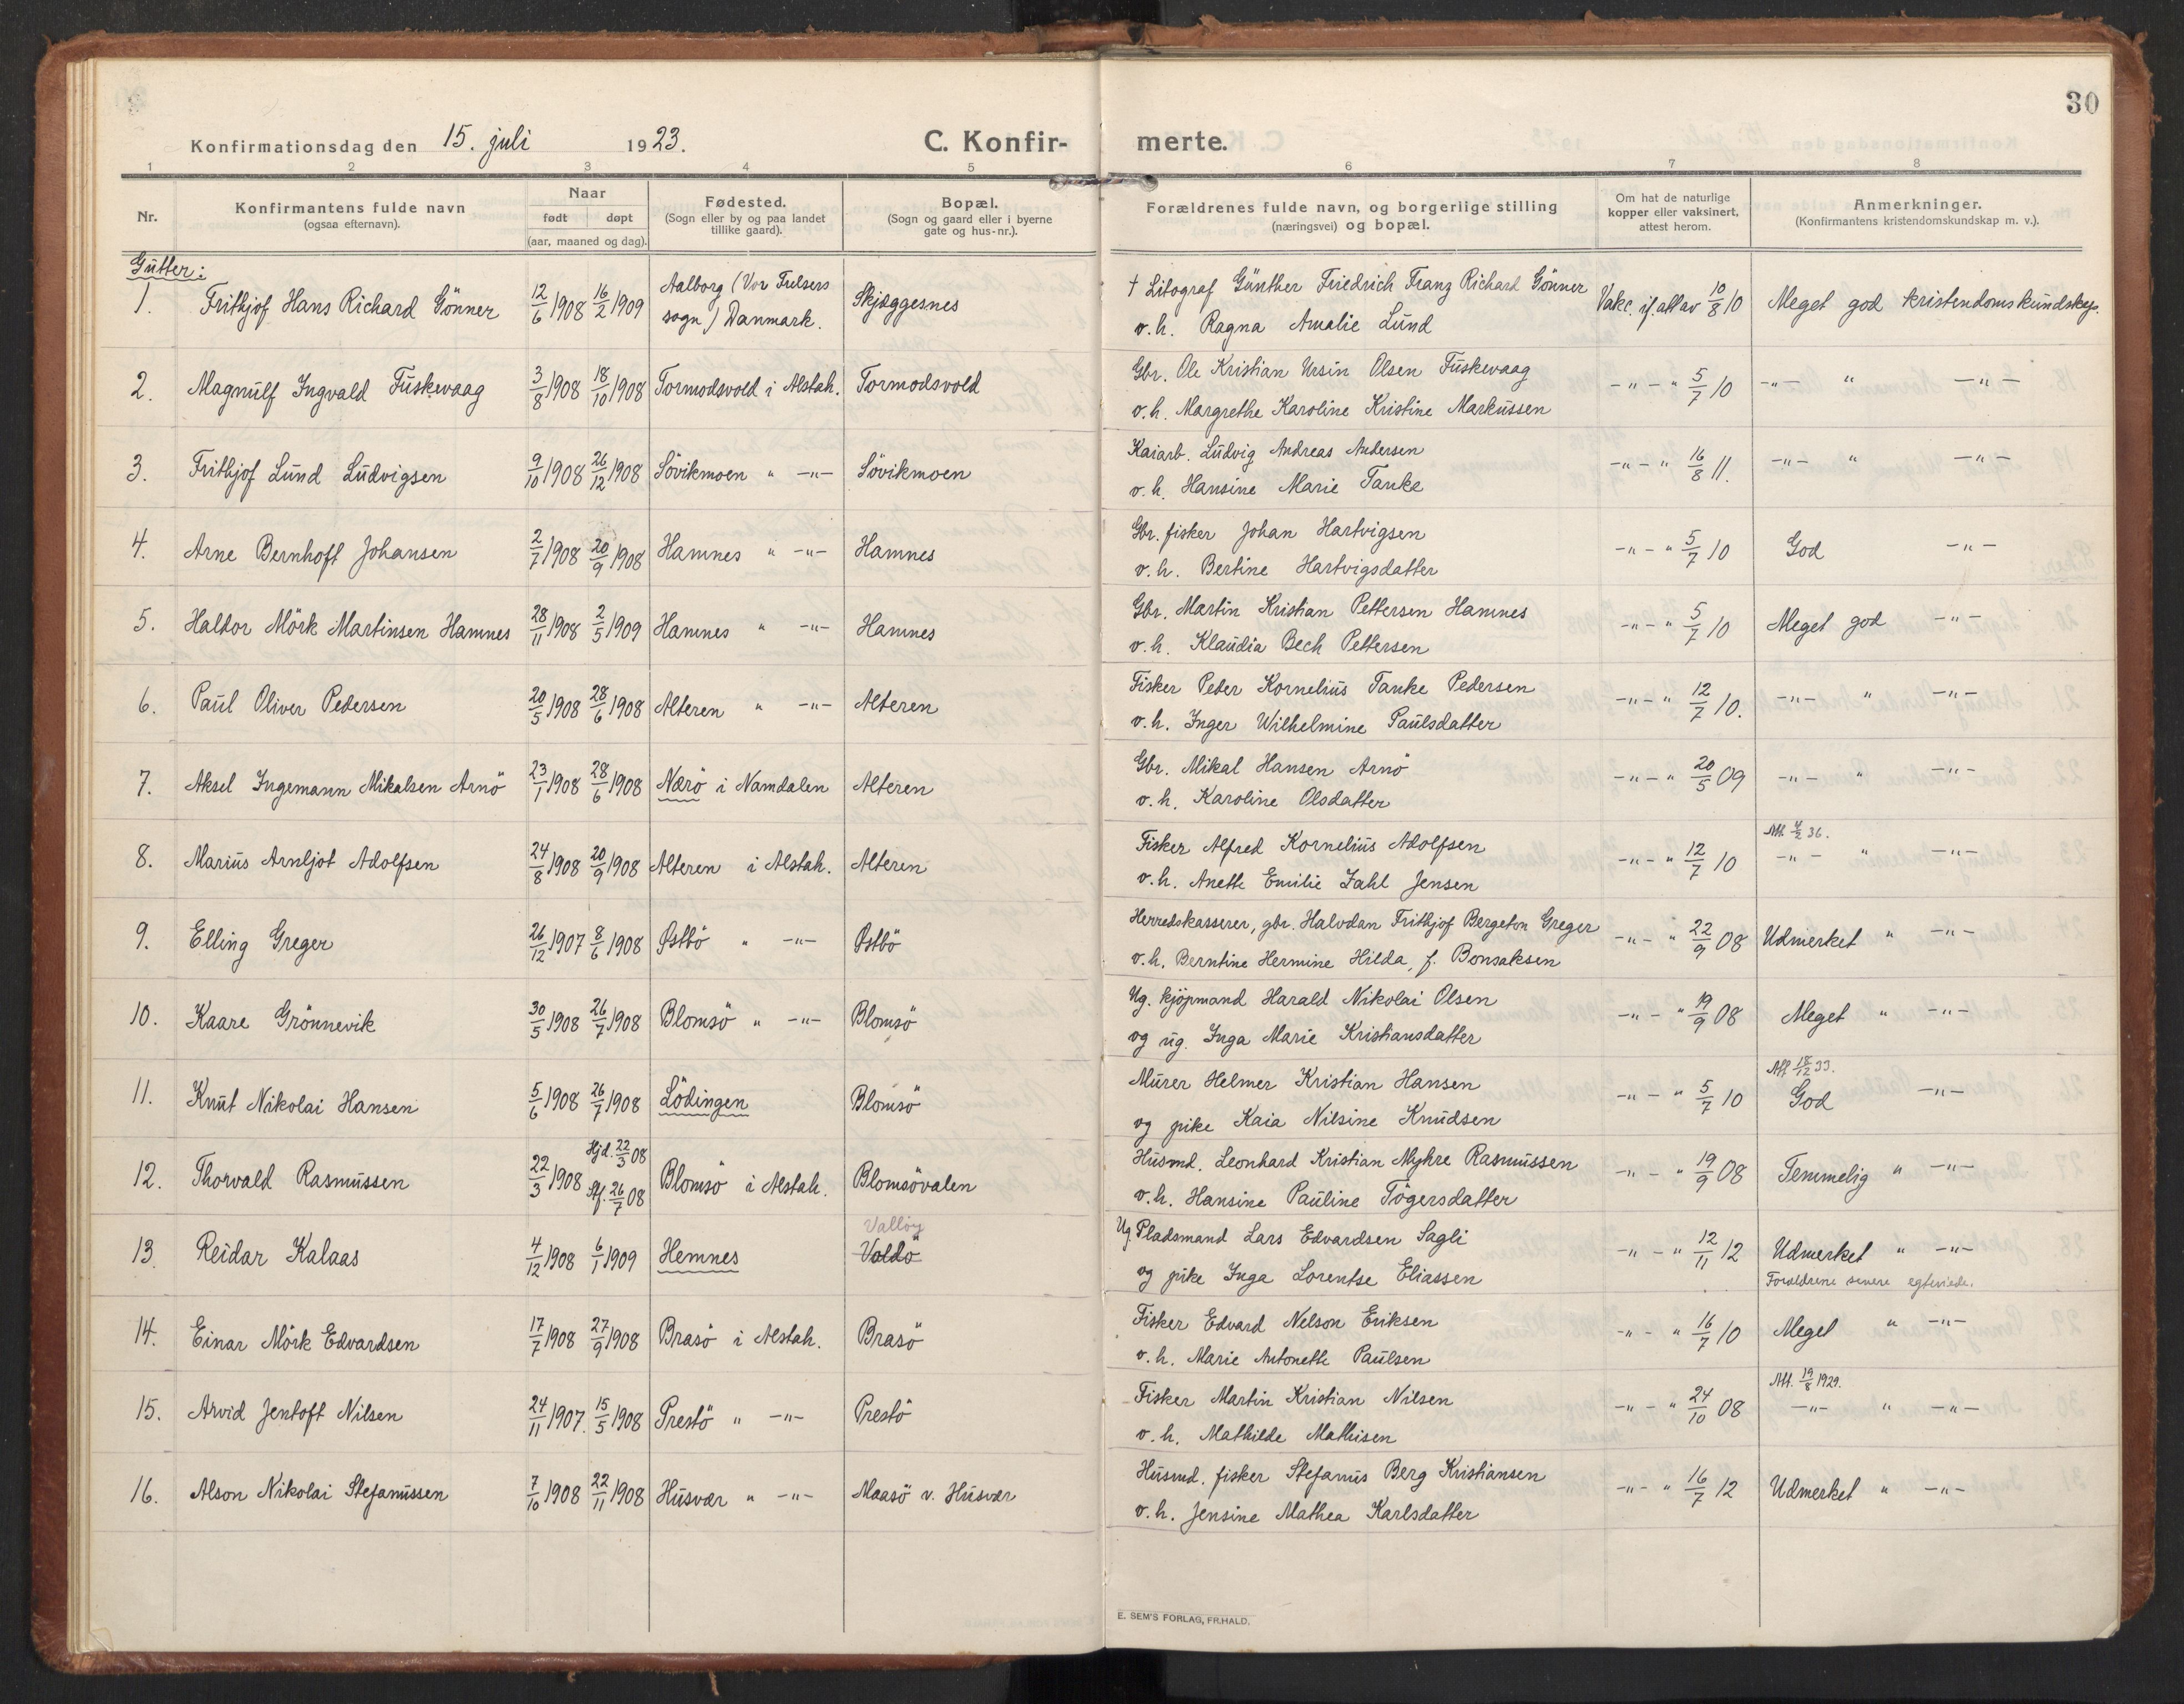 30
Konfirmationsdag den 15. juli 1923. C. Konfir- merte.
1 2 3 4 5 6 7 8
Nr.
Konfirmantens fulde navn
(ogsaa efternavn).
Naar
født døpt
(aar, maaned og dag).
Fødested.
(Sogn eller by og paa landet
tillike gaard).
Bopæl.
(Sogn og gaard eller i byerne
gate og hus-nr.).
Forældrenes fulde navn, og borgerlige stilling
(næringsvei) og bopæl.
Om hat de naturlige
kopper eller vaksinert,
attest herom.
Anmerkninger.
(Konfirmantens kristendomskundskap m. v.).
Gutter:
1. Frithjof Hans Richard Gönner 12/6 1908 16/2 1909 Aalborg (Vor Frelsers
sogn) Danmark. Skjæggesnes
† Litograf Günther Friedrich Franz Richard Gönner
v. h. Ragna Amalie Lund
Vakc. if. att av 10/8 10 Meget god kristendomskundskap.
2. Magnulf Ingvald Fuskevaag 3/8 1908 18/10 1908 Tormodsvold i Alstah. Tormodsvold
Gbr. Ole Kristian Ursin Olsen Fuskevaag
v. h. Margrethe Karoline Kristine Markussen
-"- " 5/7 10 -"- " -"-
3. Frithjof Lund Ludvigsen 9/10 1908 26/12 1908 Sövikmoen " -"- Sövikmoen
Kaiarb. Ludvig Andreas Andersen
v. h. Hansine Marie Tanke
-"- " 16/8 11. -"- " -"-
4. Arne Bernhoft Johansen 2/7 1908 20/9 1908 Hamnes " -"- Hamnes
Gbr. fisker Johan Hartvigsen
v. h. Bertine Hartvigsdatter
-"- " 5/7 10 God -"-
5. Haldor Mörk Martinsen Hamnes 28/11 1908 2/5 1909 Hamnes " -"- Hamnes
Gbr. Martin Kristian Pettersen Hamnes
v. h. Klaudia Bech Pettersen
-"- " 5/7 10 Meget god -"-
6. Paul Oliver Pedersen 20/5 1908 28/6 1908 Alteren " -"- Alteren
Fisker Peder Kornelius Tanke Pedersen
v. h. Inger Wilhelmine Paulsdatter
-"- " 12/7 10. -"- " -"-
7. Aksel Ingemann Mikalsen Arnö 23/1 1908 28/6 1908 Nærö i Namdalen Alteren
Gbr. Mikal Hansen Arnö
v. h. Karoline Olsdatter
-"- " 20/5 09 -"- " -"-
8. Marius Arnljot Adolfsen 24/8 1908 20/9 1908 Alteren i Alstah. Alteren
Fisker Alfred Kornelius Adolfsen
v. h. Anette Emilie Zahl Jensen
-"- " 12/7 10 Att. 4/2 36.
-"- " -"-
9. Elling Greger 26/12 1907 8/6 1908 Østbö " -"- Østbö
Herredskasserer, gbr. Halvdan Frithjof Bergeton Greger
v. h. Berntine Hermine Hilda, f. Bonsaksen
-"- " 22/9 08 Udmerket " -"-
10. Kaare Grönnevik 30/5 1908 26/7 1908 Blomsö " -"- Blomsö
Ug. kjöpmand Harald Nikolai Olsen
og ug. Inga Marie Kristiansdatter
-"- " 19/9 08 Meget " -"-
11. Knut Nikolai Hansen 5/6 1908 26/7 1908 Lödingen Blomsö
Murer Helmer Kristian Hansen
og pike Kaia Nilsine Knudsen
-"- " 5/7 10 Att 18/12 33.
God -"-
12. Thorvald Rasmussen 22/3 1908 Hjd. 22/3 08
Stf. 26/7 08 Blomsö i Alstah. Blomsövalen
Husmd. Leonhard Kristian Myhre Rasmussen
v. h. Hansine Pauline Tögersdatter
-"- " 19/9 08 Temmelig " -"-
13. Reidar Kalaas 4/12 1908 6/1 1909 Hemnes Valløy
Valdö
Ug. Pladsmand Lars Edvardsen Sagli
og pike Inga Lorentse Eliassen
-"- " 12/11 12 Udmerket " -"-
Forældrene senere egteviede.
14. Einar Mörk Edvardsen 17/7 1908 27/9 1908 Brasö i Alstah. Brasö
Fisker Edvard Nelson Eriksen
v. h. Marie Antonette Paulsen
-"- " 16/7 10 Meget " -"-
15. Arvid Jentoft Nilsen 24/11 1907. 15/5 1908 Prestö " -"- Prestö
Fisker Martin Kristian Nilsen
v. h. Mathilde Mathisen
-"- " 24/10 08 Att. 19/8 1929.
-"- " -"-
16. Alson Nikolai Stefanussen 7/10 1908 22/11 1908 Husvær " -"- Maasö v. Husvær
Husmd. fisker Stefanus Berg Kristiansen
v. h. Jensine Mathea Karlsdatter
-"- " 16/7 12 Udmerket " -"-
E. SEM'S FORLAG, FR.HALD.